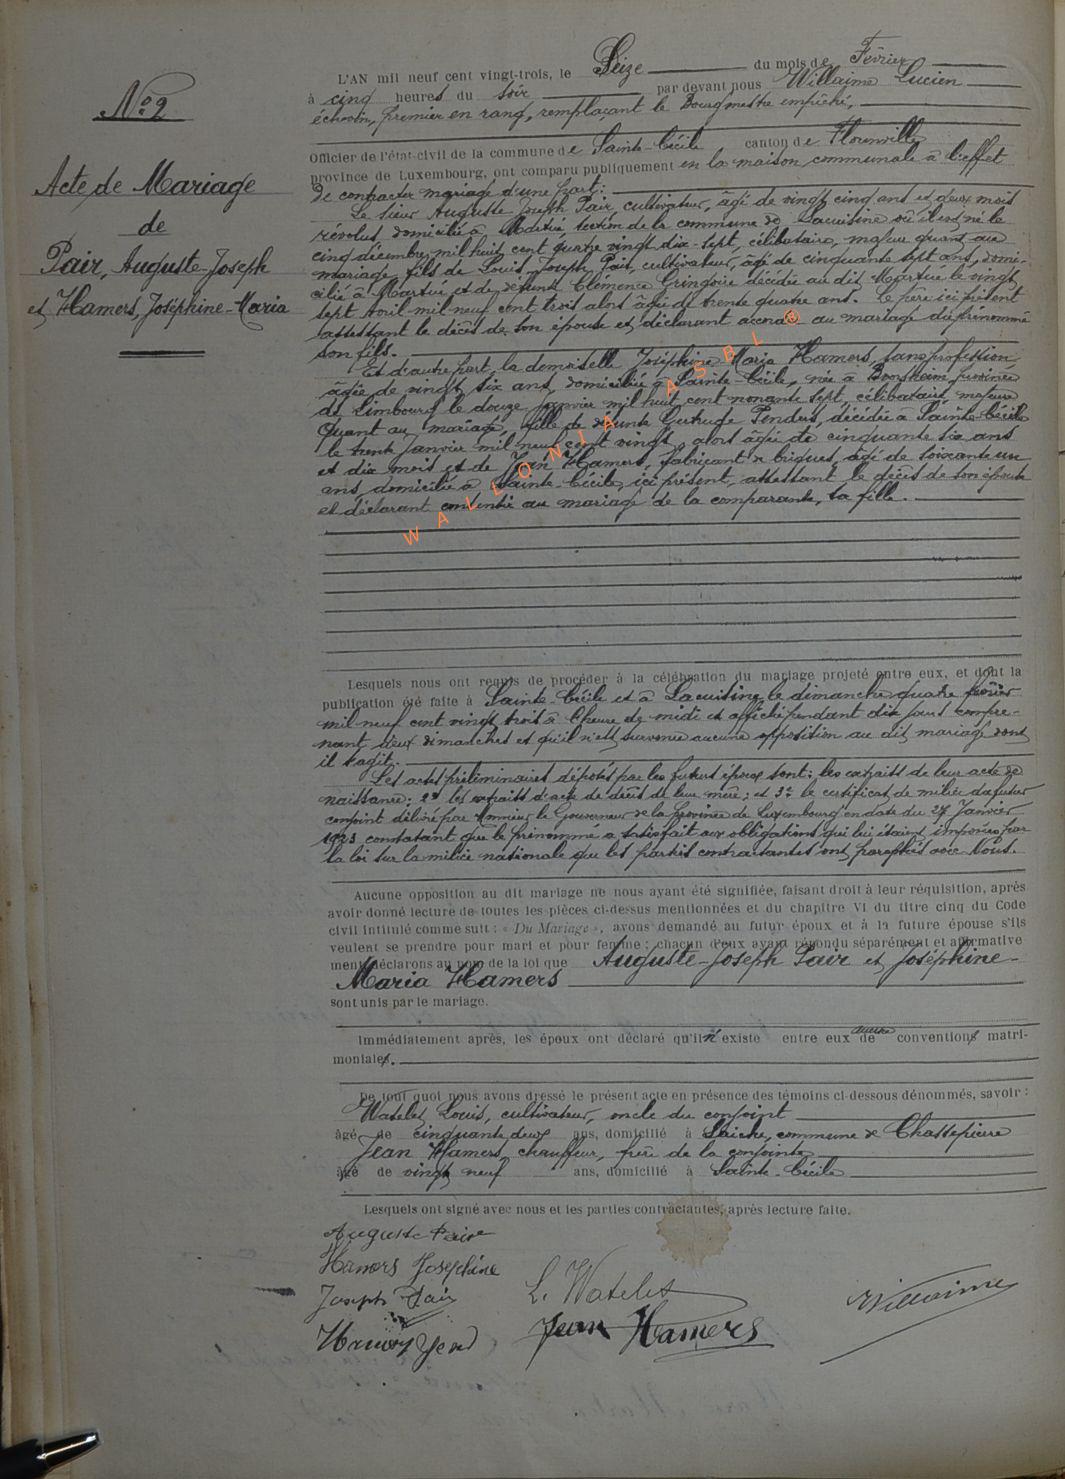 N° 2
Acte de Mariage
de
Pair, Auguste-Joseph
et Hamers, Joséphine-Maria
L'AN mil neuf cent vingt-trois, le Seize du mois de Février
à cinq heures du soir par devant nous Willaime Lucien
échevin, premier en rang, remplaçant le Bourgmestre empêché,
Officier de l'état-civil de la commune de Sainte-Cécile canton de Florenville
province de Luxembourg, ont comparu publiquement en la maison communale à l'effet
de contracter mariage d'une part:
Le sieur Auguste Joseph Pair, cultivateur, âgé de vingt cinq ans et deux mois
révolus, domicilié à Martué section de la commune de Lacuisine où il est né le
cinq décembre mil huit cent quatre vingt dix-sept, célibataire, majeur quant au
mariage, fils de Louis Joseph Pair, cultivateur, âgé de cinquante sept ans, domi-
cilié à Martué et de défunte Clémence Gringoire décédée au dit Martué le vingt
sept avril mil neuf cent trois alors âgée de trente quatre ans. Le père ici présent
attestant le décès de son épouse et déclarant au mariage du prénommé
son fils.
Et d'autre part, la demoiselle Joséphine Maria Hamers, sans profession,
âgée de vingt six ans, domiciliée à Sainte-Cécile, née à province
de Limbourg le douze janvier mil huit cent nonante sept, célibataire, majeure
quant au mariage, fille de défunte Gertrude Penders, décédée à Sainte-Cécile
le trente janvier mil neuf cent vingt, alors âgée de cinquante six ans
et dix mois et de Jean Hamers, fabricant de briques, âgé de soixante un
ans, domicilié à Sainte-Cécile, ici présent, attestant le décès de son épouse
et déclarant consentir au mariage de la comparante, sa fille.
WALLONIA ASBL ®
Lesquels nous ont requis de procéder à la célébration du mariage projeté entre eux, et dont la
publication été faite à Sainte-Cécile et à Lacuisine le dimanche quatre février
mil neuf cent vingt trois à l'heure de midi et affiché pendant dix jours compre-
nant deux dimanches et qu'il n'est survenue aucune opposition au dit mariage dont
il s'agit.
Les actes préliminaires déposés par les futurs époux sont: les extraits de leur acte de
naissance; 2° les extraits d'acte de décès de leur mère; et 3° le certificat de milice du futur
conjoint délivré par Monsieur le Gouverneur de la Province de Luxembourg en date du 27 Janvier
1923 constatant que le prénommé a satisfait aux obligations qui lui étaient imposées par
la loi sur la milice nationale que les parties contractantes ont paraphés avec Nous.
Aucune opposition au dit mariage ne nous ayant été signifiée, faisant droit à leur réquisition, après
avoir donné lecture de toutes les pièces ci-dessus mentionnées et du chapitre VI du titre cinq du Code
civil intitulé comme suit : « Du Mariage », avons demandé au futur époux et à la future épouse s'ils
veulent se prendre pour mari et pour femme ; chacun d'eux ayant répondu séparément et affirmative
ment, déclarons au nom de la loi que Auguste-Joseph Pair et Joséphine-
Maria Hamers
sont unis par le mariage.
Immédiatement après, les époux ont déclaré qu'il n'existe entre eux aucune de conventions matri-
moniales.
De tout quoi nous avons dressé le présent acte en présence des témoins ci-dessous dénommés, savoir :
Watelet Louis, cultivateur, oncle du conjoint
âgé de cinquante deux ans, domicilié à Laiche, commune de Chassepierre
Jean Hamers, chauffeur, frère de la conjointe
âgé de vingt neuf ans, domicilié à Sainte-Cécile
Lesquels ont signé avec nous et les parties contractantes, après lecture faite.
Auguste Pair
Hamers Joséphine
Joseph Pair
L. Watelet
Willaime
Hamers Jean
Jean Hamers